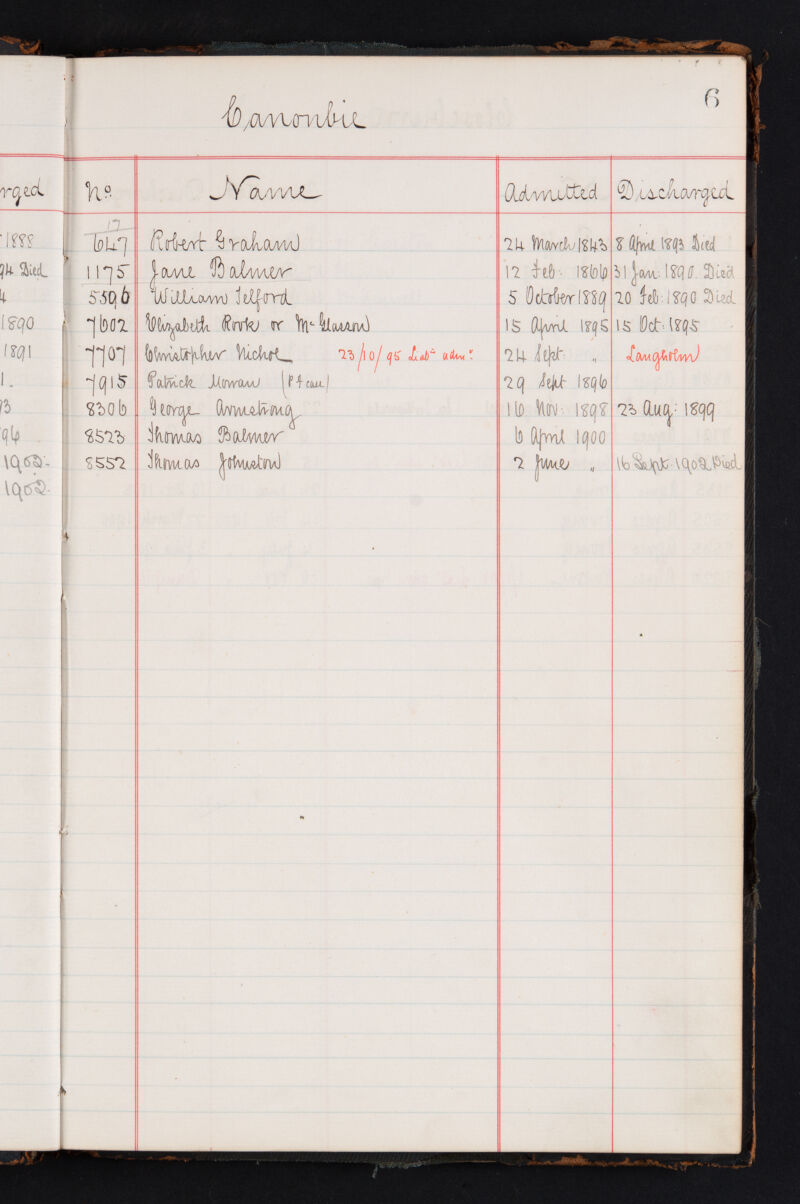 6
Canonbie
rged No. Name Admitted Discharged
17
1888 647 Robert Graham 24 March 1843 8 April 1893 Died
94 Died 1175 Jane Balmer 12 Feb: 1866 31 Jan: 1890. Died
4 5596 William Telford 5 October 1889 20 Feb: 1890 Died
1890 7602 Elizabeth Rook or McGlasson 15 April 1895 15 Oct: 1895
1891 7707 Christopher Nichol 23/10/95 Liaby admd. 24 Sept " Langholm
1. 7915 Patrick Morran (P4 case) 29 Sept 1896
3 8306 George Armstrong 16 Nov: 1898 23 Aug: 1899
96 8523 Thomas Balmer 6 April 1900
1902. 8552 Thomas Johnston 2 June " 16 Sept: 1902 Died
1902.